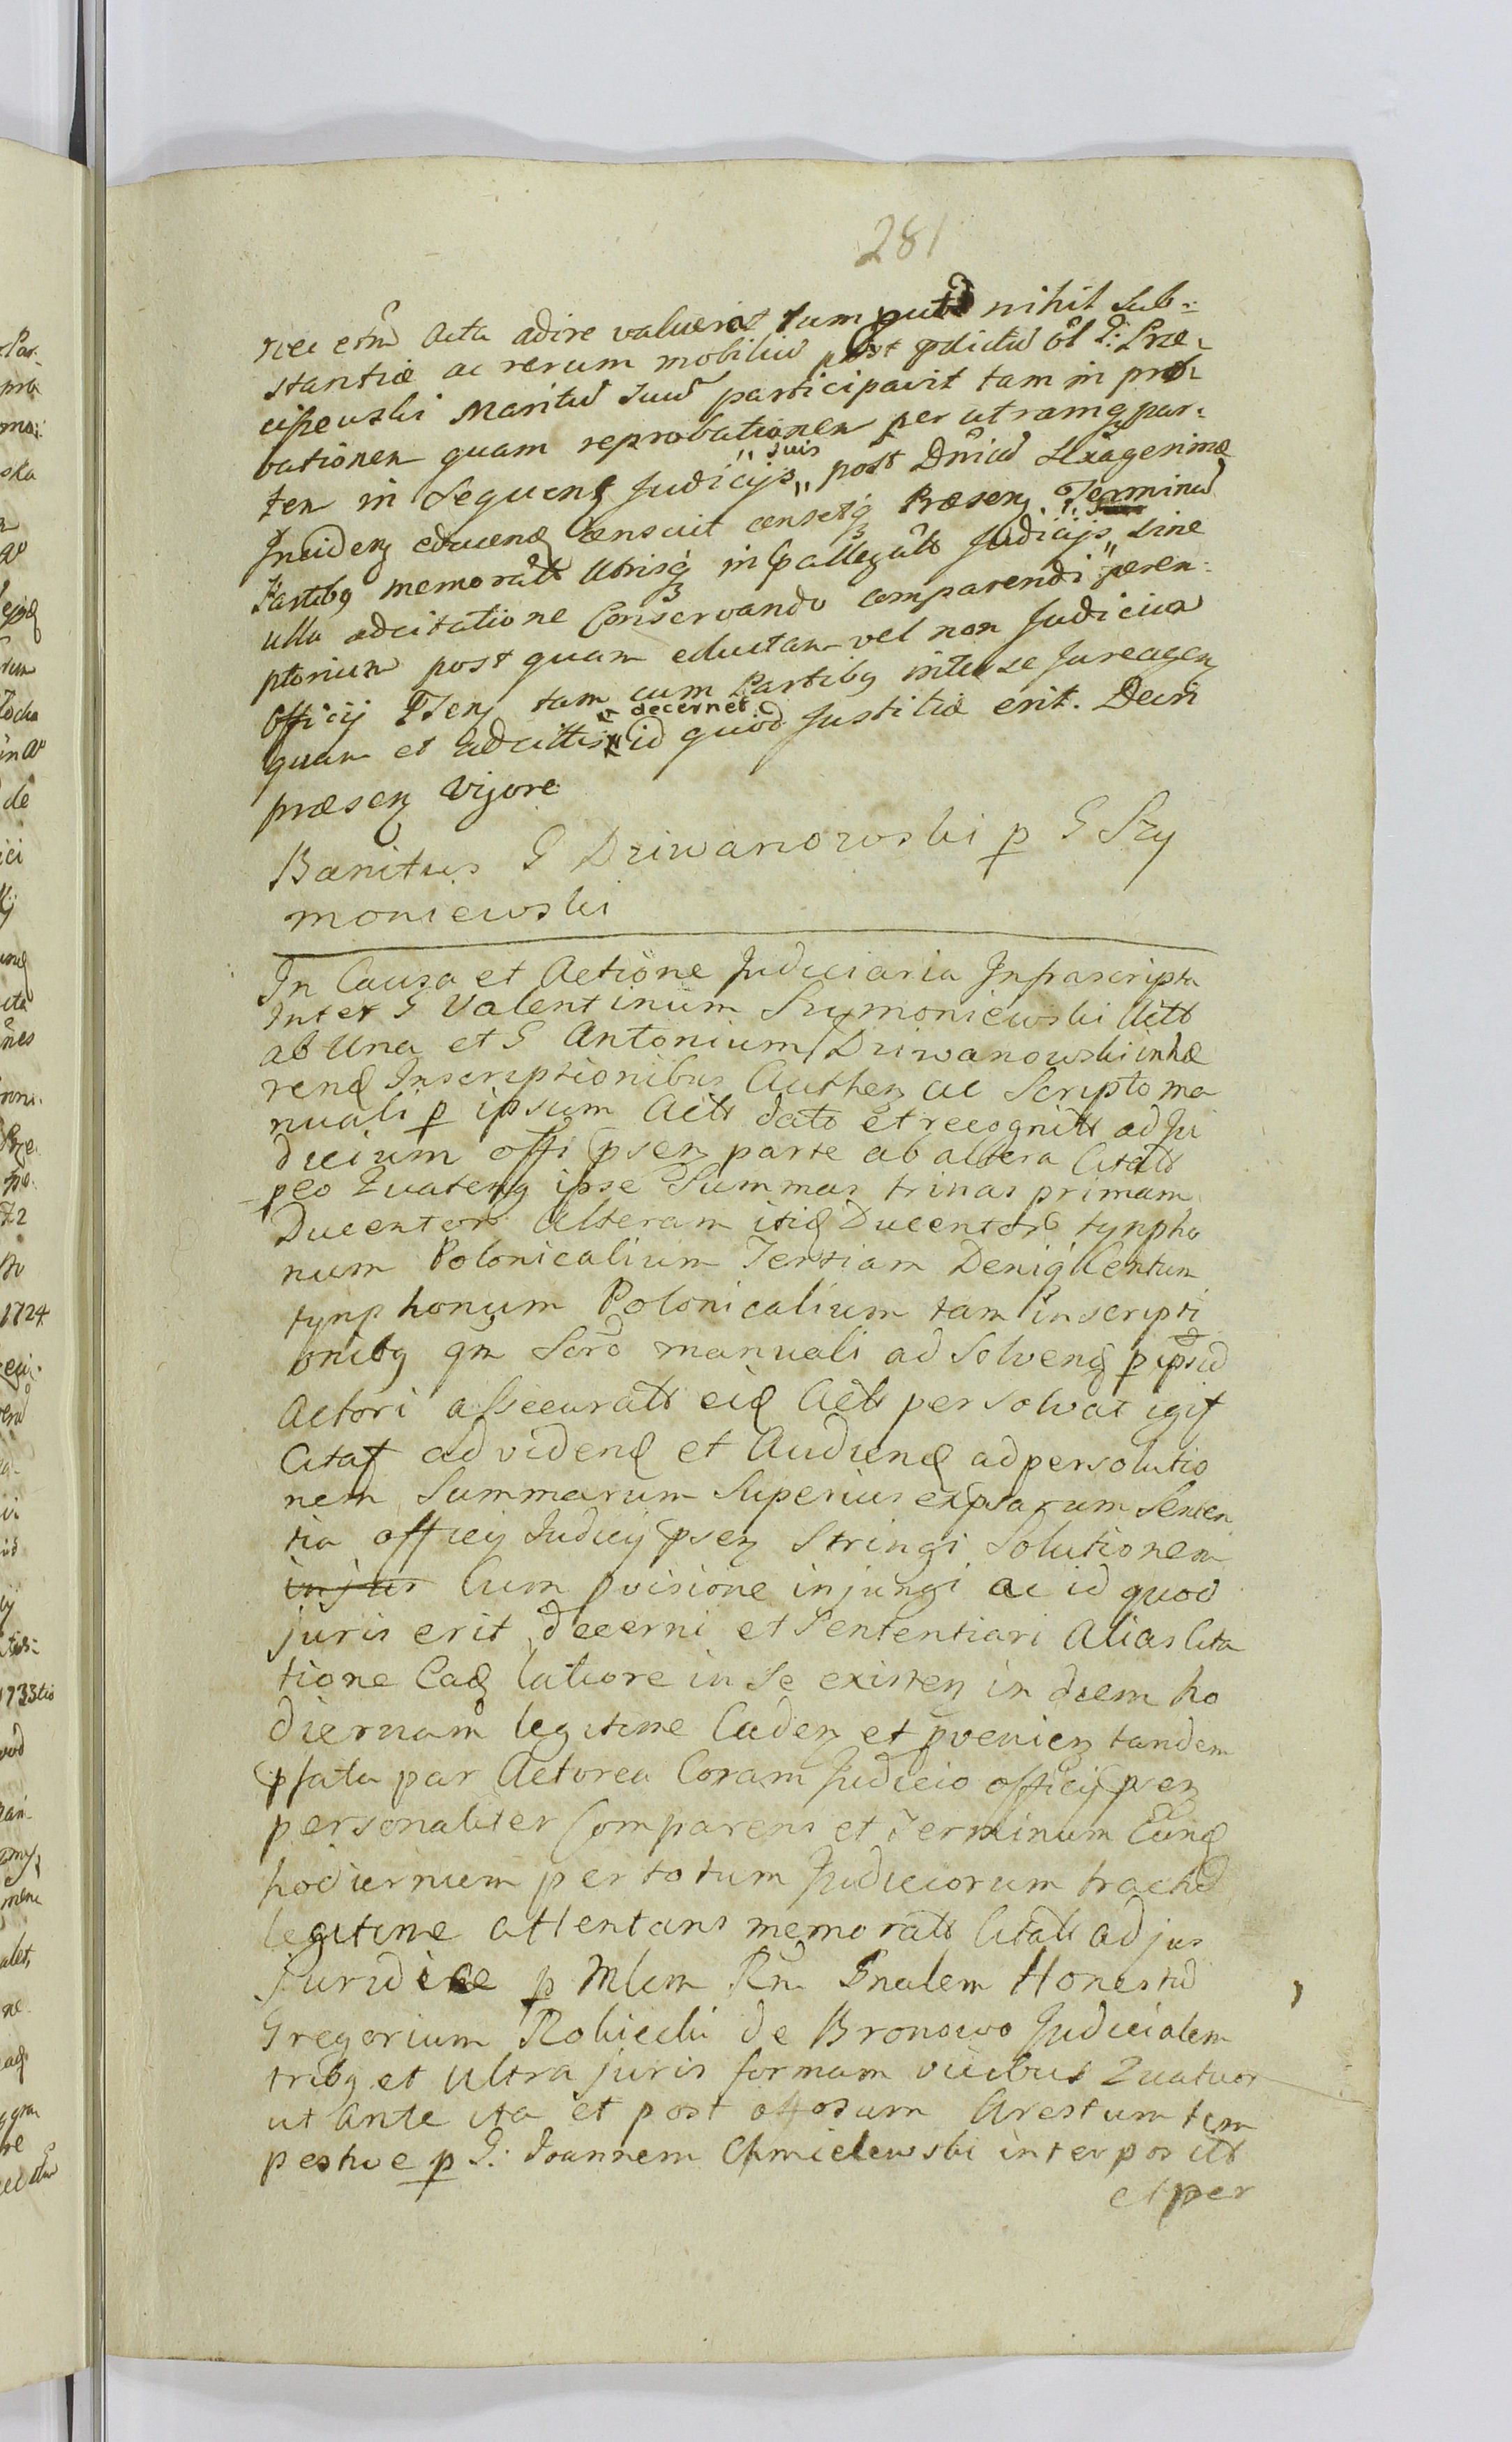 281
nec eōm Acta adire valuerit tum put nihil Sub-
stantiæ ac rerum mobiliū post pdictū Ol G: Præ-
ciszewski Maritū Suū participavit tam in pro-
bationem quam reprobationem per utramq par-
tem in Sequenz Judicijs suis post Dnicā Sexagesimæ
Incidenz educend censuit censetq Præsenz Terminū
Partibg memoratt Utrisq in pallegatt Judicijs sine
ulla adcitatione Conservando comparendi peren-
ptorium post quam eductam vel non Judicium
Officij PSenz tam cum Partibg inter se Jure agenz
quam et adcittis decernet id quod Justitiæ erit. Decri
præsenz Vigore
Banitus G Dziwanowski p G Szy
moniewski
In Causa et Actione Judiciaria Infrascripta
Inter G Valentinum Szymoniewski Actt
ab Una et G Antonium Dziwanowski inhæ
rend Inscriptionibus Authenz ac Scripto ma
nuali p ipsum Actt dato et recognitt ad Ju
dicium offi psenz parte ab altera Citatt
peo Quateng ipse Summas trinas primam
Ducentor alteram itid Ducentor tynpho
num Polonicalium Tertiam Deniq Centum
tynphonum Polonicalium tam inscripti
onibg qm Scrō manuali ad Solvend p ipsū
Actori assecuratt eid Actt persolvat igit
Citat ad vidend et Audiend ad persolutio
nem Summarum Superius expsarum Senten
tia officij Judicij psenz Stringi Solutionem
injur Cum pvisione injungi ac id quod
juris erit decerni et Sententiari Alias Cita
tione Ead latiore in Se existenz in diem ho
diernam legitime Cadenz et pvenienz tandem
pfata par Actorea Coram Judicio officij psenz
personaliter Comparens et Terminum Eund
hodiernum per totum Judiciorum tractū
legitime attentans memoratt Citatt ad jus
Juridice p Mlem Rn Gnalem Honestū
Gregorium Robiecki de Bronowo Judicialem
tribg et Ultra juris formam vicibus Quatuor
ut ante ita et post offosum Arestum tem
pestive p G: Joannem Chmielewski interpositt
et per